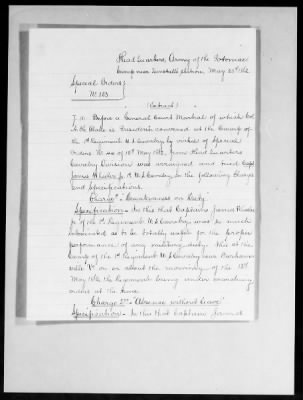 Head Quarters Army of the Potomac
Camp near Tunstall's Station May 20th 1862
Special Orders
No 153
(Extract)
I. a. Before a General Court Martial of which Col
is President convened at the Camp of
the 1st Regiment U.S. Cavalry by virtue of Special
Orders No of 15th May 1862, from Head Quarters
Cavalry Division was arraigned and tried Capt
James jr. 1st U.S. Cavalry on the following charges
and Specifications.
Charge 1st Drunkenness on Duty
Specification - In this that Captain James
jr of the 1st Regiment U.S. Cavalry was so much
intoxicated as to be totally unfit for the proper
performance of any military duty. This at the
Camp of the 1st Regiment U.S. Cavalry near
Va on or about the morning of the 13th
May 1862 the Regiment being under marching
orders at the time
Charge 2nd "Absence without leave"
Specification - In this that Captain James